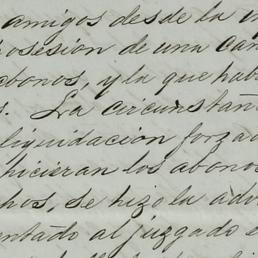 amigos desde la
posesión de una can
abonos, y la que hab
s. La circunstan
liquidación forza
hicieran los abonos
hos, se hizo la adv
entado al juzgado e